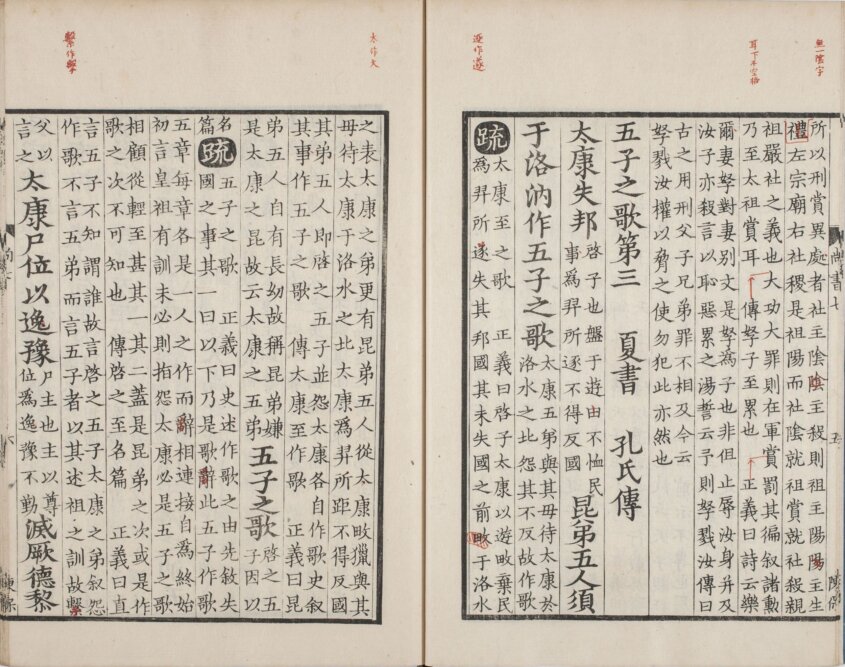 無一陰字
耳下不空格
逐作遂
所以刑賞異處者社主陰陰主殺則祖主陽陽主生
禮左宗廟右社稷是祖陽而社陰就祖賞就社殺親
祖嚴社之義也大功大罪則在軍賞罰其徧叙諸勲
乃至太祖賞耳 傳孥子至累也 正義曰詩云樂
爾妻孥對妻别文是孥爲子也非但止辱汝身并及
汝子亦殺言以恥惡累之湯誓云予則孥戮汝傳曰
古之用刑父子兄弟罪不相及今云
孥戮汝權以脅之使勿犯此亦然也
五子之歌第三 夏書 孔氏傳
太康失邦 啓子也盤于遊由不恤民
事爲羿所逐不得反國 昆弟五人須
于洛汭作五子之歌 太康五弟與其母待太康於
洛水之北怨其不反故作歌
疏 太康至之歌 正義曰啓子太康以遊畋棄民
爲羿所逐失其邦國其未失國之前畋于洛水
尚書七
五
太作大
之表太康之弟更有昆弟五人從太康畋獵與其
母待太康于洛水之北太康爲羿所距不得反國
其弟五人即啓之五子並怨太康各自作歌史叙
其事作五子之歌 傳太康至作歌 正義曰昆
弟五人自有長幼故稱昆弟嫌
是太康之昆故云太康之五弟 五子之歌 啓之五
子因以
名篇 疏 五子之歌 正義曰史述作歌之由先敘失
國之事其一曰以下乃是歌辭此五子作歌
五章每章各是一人之作而辭相連接自爲終始
初言皇祖有訓未必則指怨太康必是五子之歌
相顧從輕至甚其一其二蓋是昆弟之次或是作
歌之次不可知也 傳啓之至名篇 正義曰直
言五子不知謂誰故言啓之五子太康之弟叙怨
作歌不言五弟而言五子者以其述祖之訓故繫
父以
言之 太康尸位以逸豫 尸主也主以尊
位爲逸豫不勤 滅厥德黎